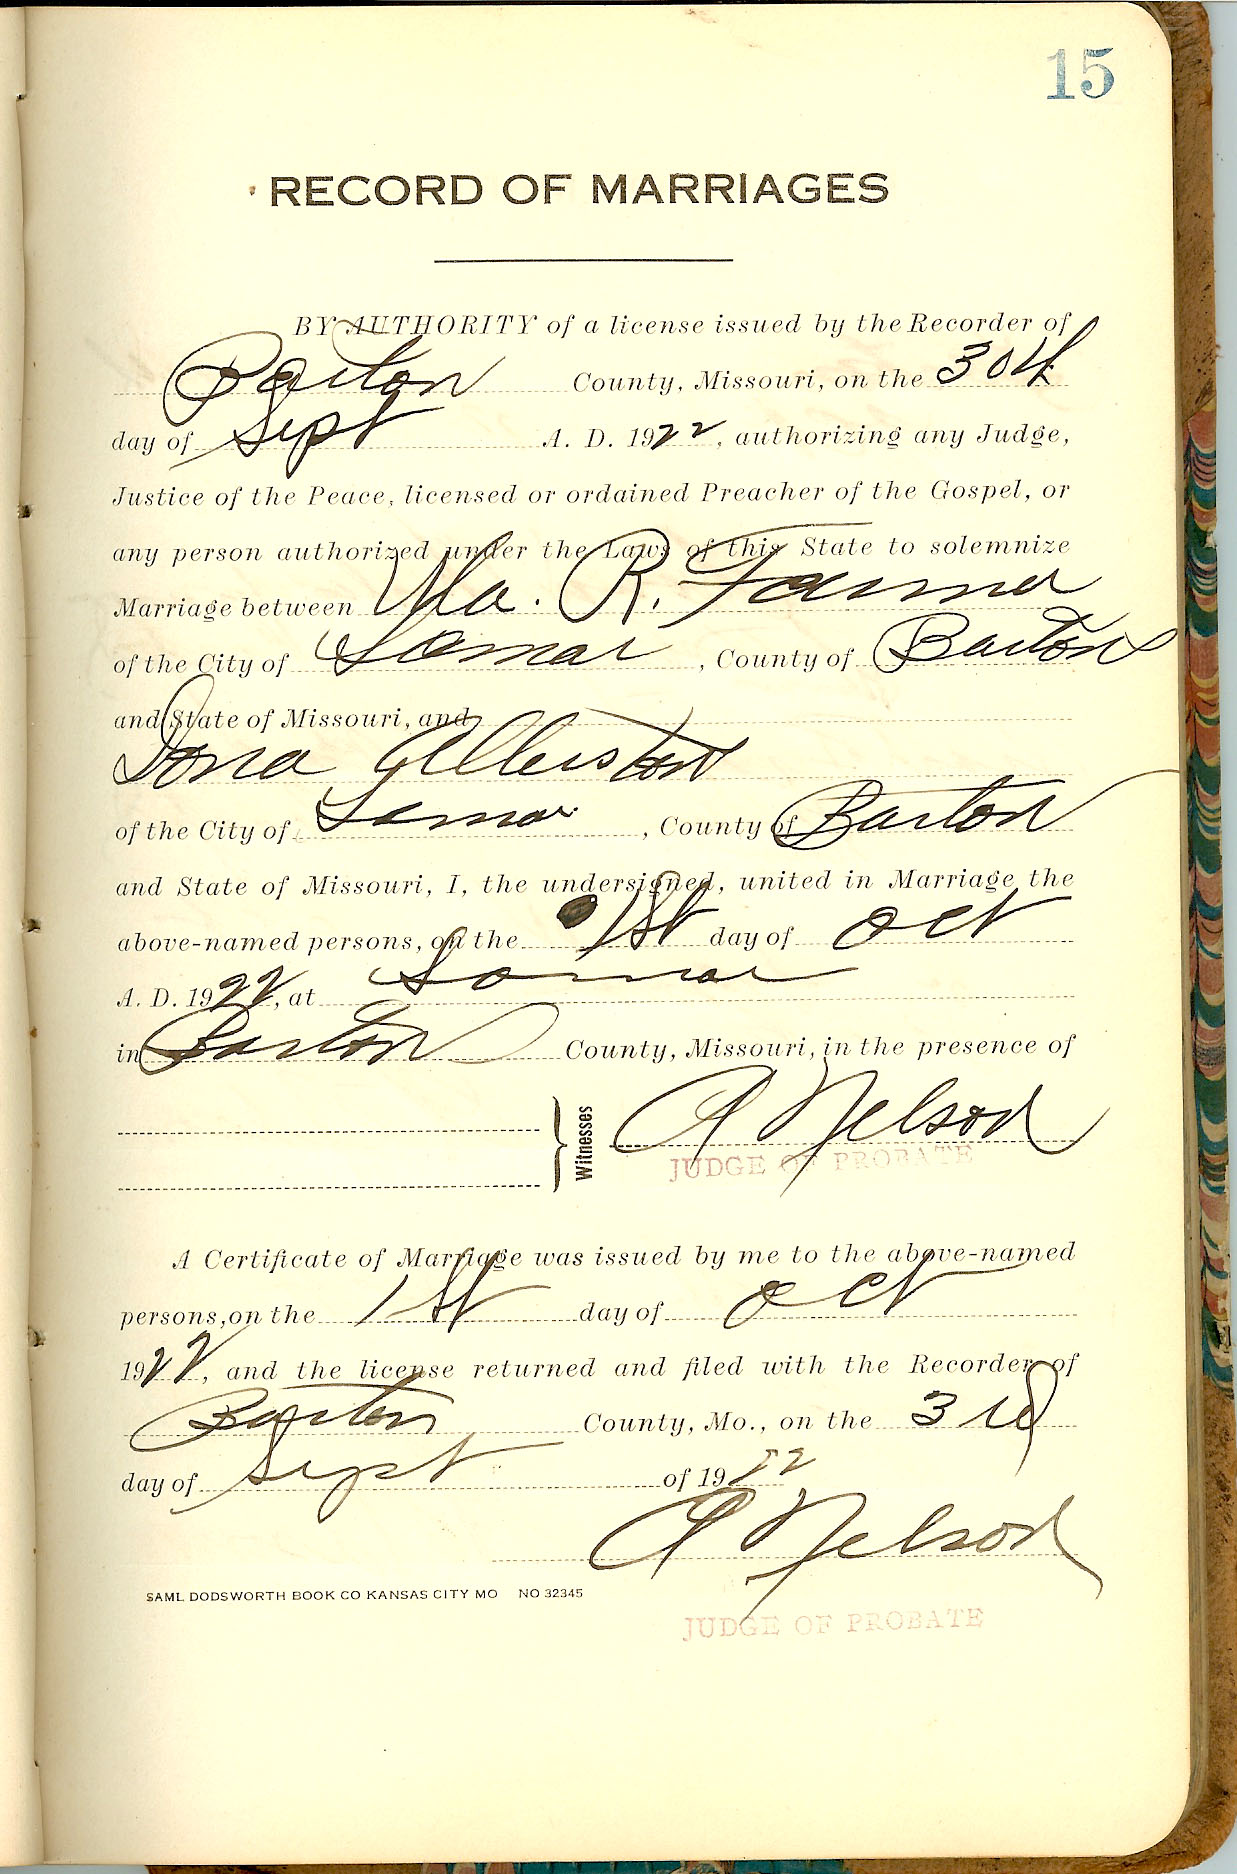 15
RECORD OF MARRIAGES
BY AUTHORITY of a license issued by the Recorder of
Barton County, Missouri, on the 30th
day of Sept A. D. 1922, authorizing any Judge,
Justice of the Peace, licensed or ordained Preacher of the Gospel, or
any person authorized under the Laws of this State to solemnize
Marriage between R. Farmer
of the City of Lamar, County of Barton
and State of Missouri, and
Dona
of the City of Lamar, County of Barton
and State of Missouri, I, the undersigned, united in Marriage the
above-named persons, on the 1st day of Oct
A. D. 1922, at Lamar
in Barton County, Missouri, in the presence of
Witnesses
A Nelson
JUDGE OF PROBATE
A Certificate of Marriage was issued by me to the above-named
persons, on the 1st day of Oct
1922, and the license returned and filed with the Recorder of
Barton County, Mo., on the 3rd
day of Sept of 1922
A Nelson
SAML DODSWORTH BOOK CO KANSAS CITY MO NO 32345
JUDGE OF PROBATE